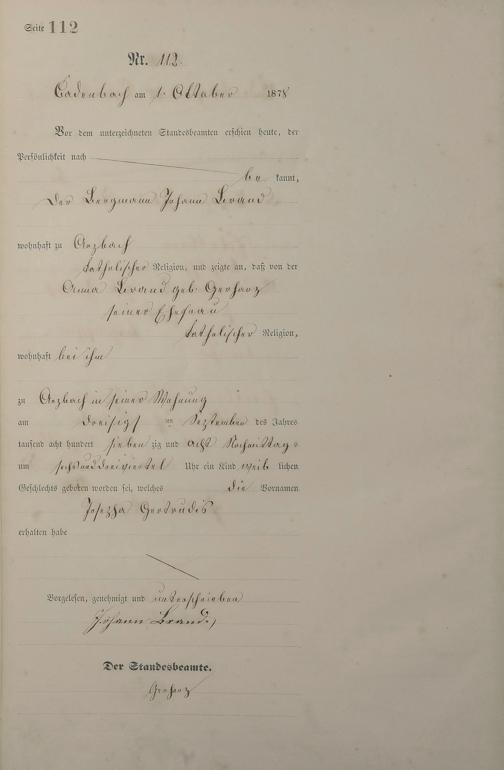 Seite 112
Nr. 112.
Cadenbach am 1. Oktober 1878
Vor dem unterzeichneten Standesbeamten erschien heute, der
Persönlichkeit nach
be kannt,
der Bergmann Johann Brand
wohnhaft zu Arzbach
katholischer Religion, und zeigte an, daß von der
Anna Brand geb. Gerharz
seiner Ehefrau
katholischer Religion,
wohnhaft bei ihm
zu Arzbach in seiner Wohnung
am dreisigsten September des Jahres
tausend acht hundert sieben zig und acht Nachmittags
um sechsunddreiviertel Uhr ein Kind weib lichen
Geschlechts geboren worden sei, welches die Vornamen
Josepha Gertrudis
erhalten habe
Vorgelesen, genehmigt und unterschrieben
Johann Brand
Der Standesbeamte.
Gerharz